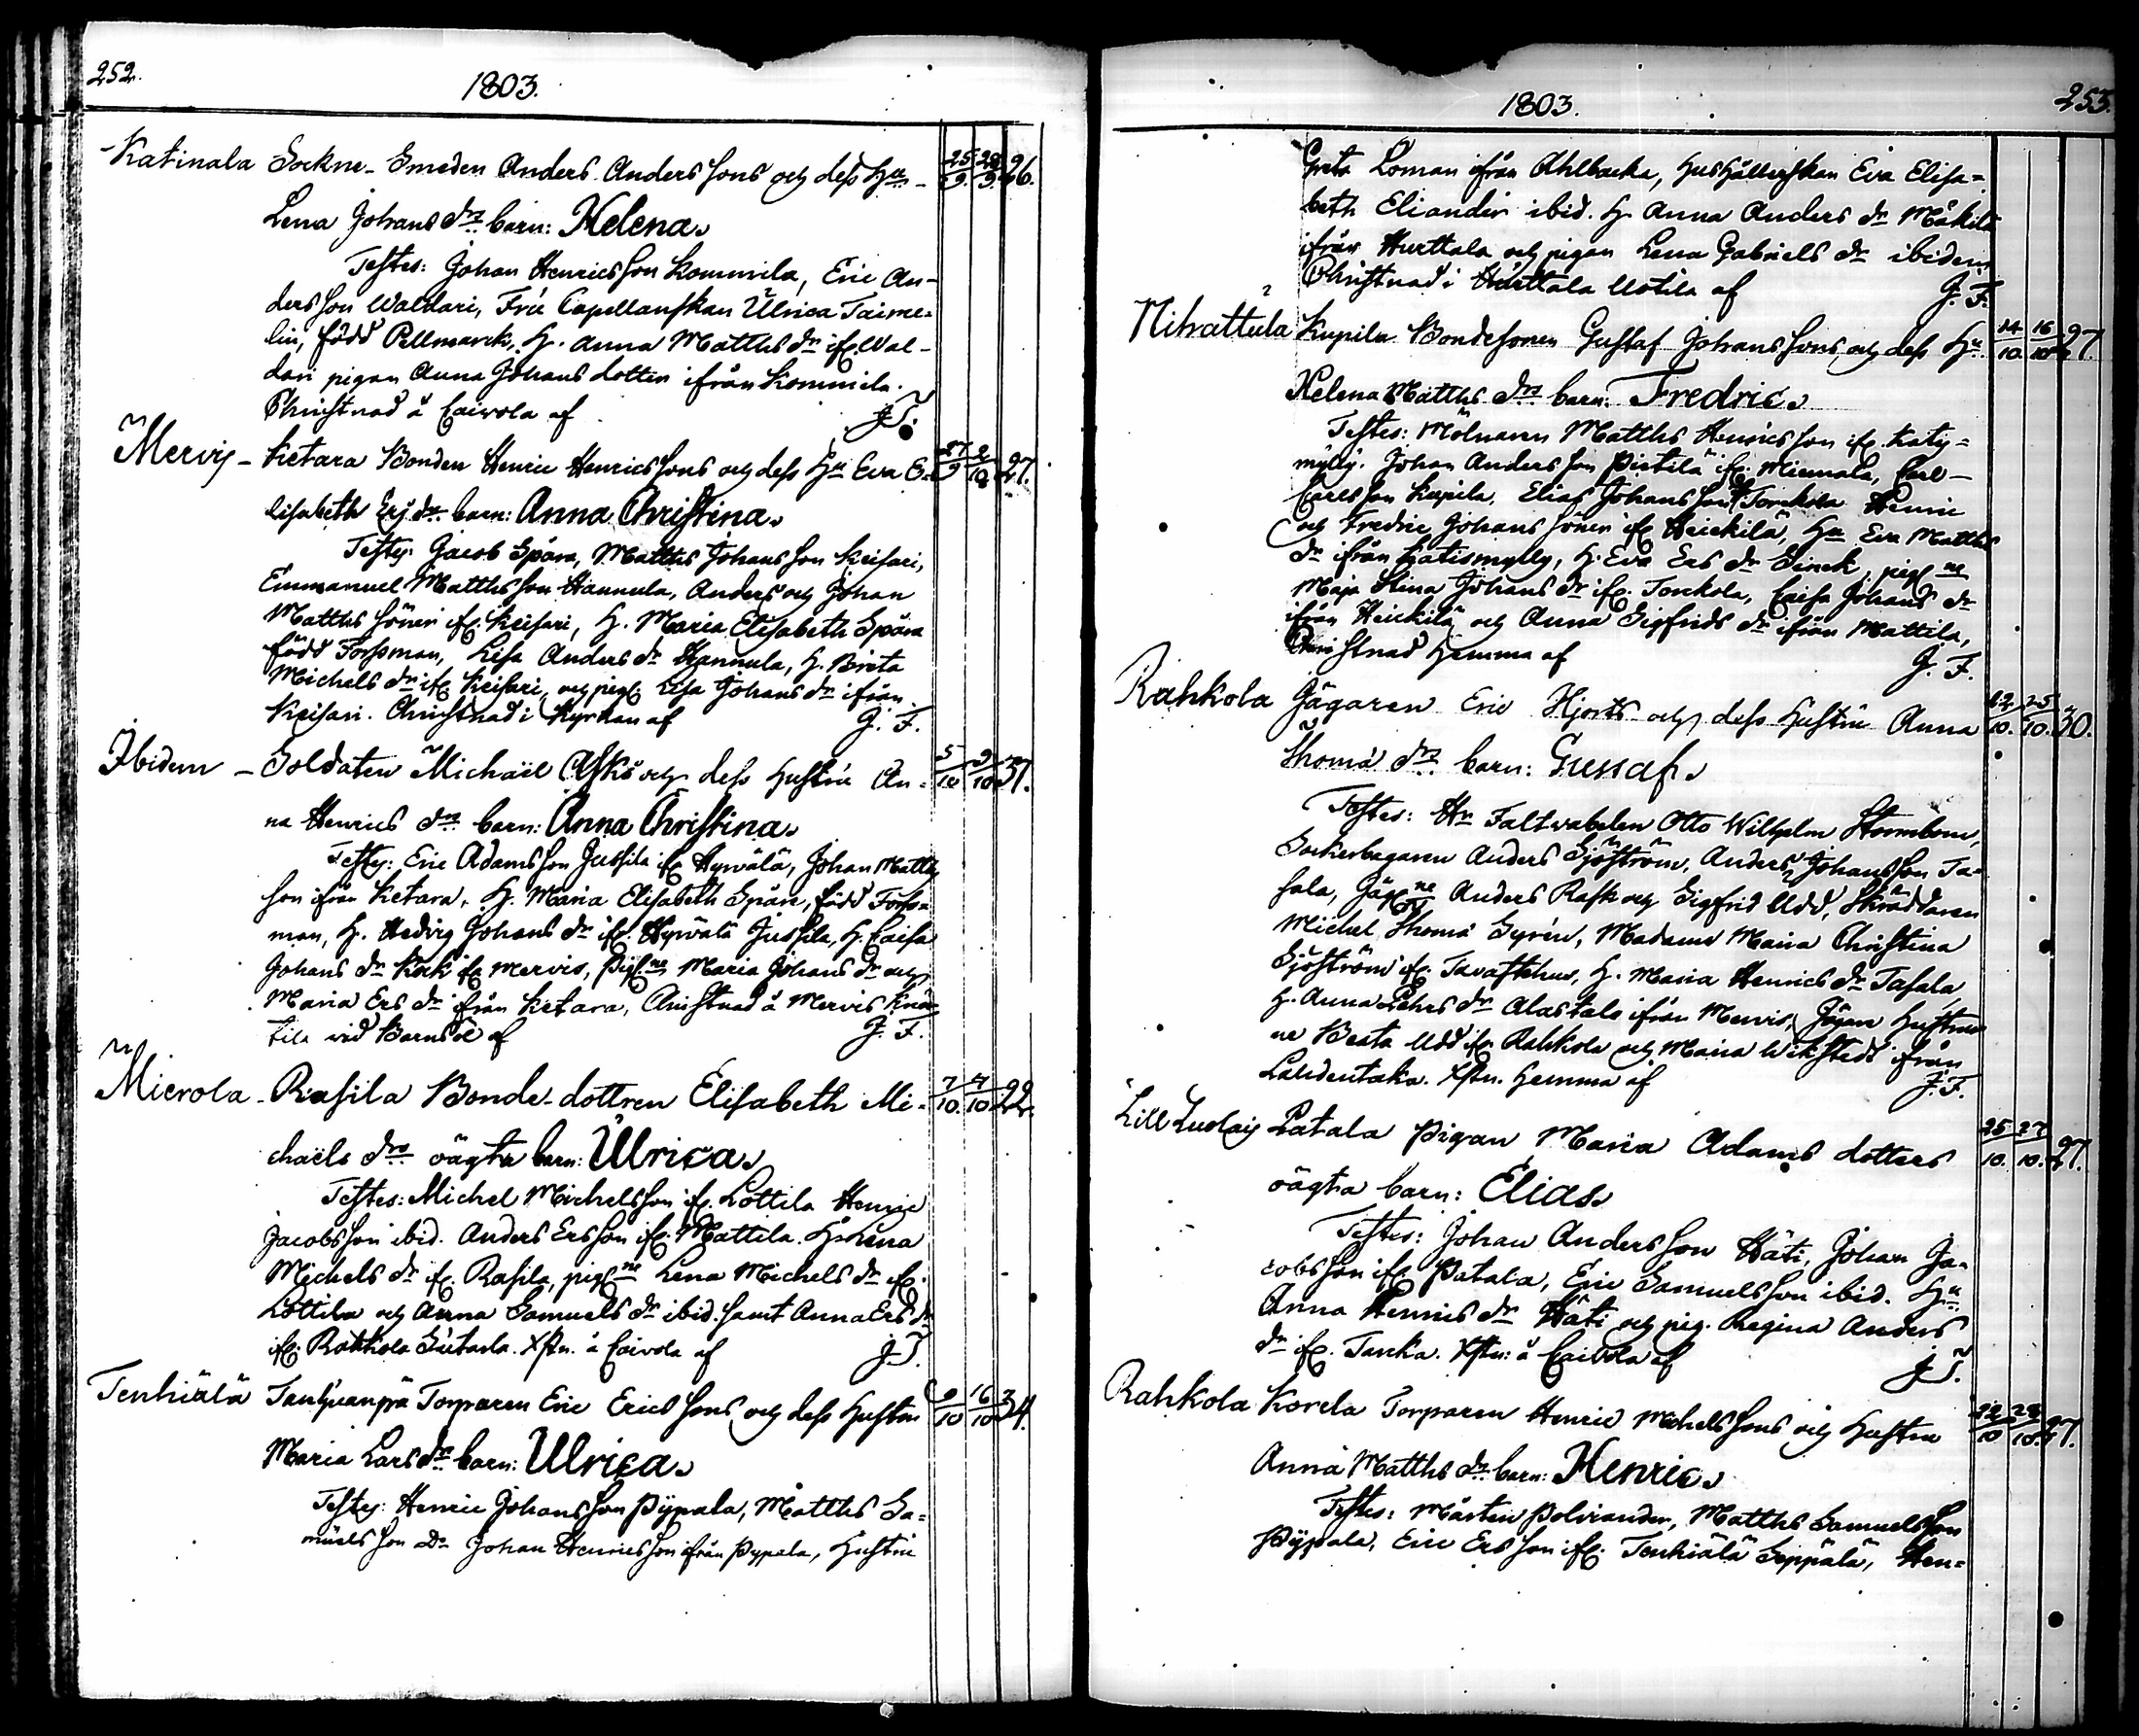 252.
1803.
Katinala Sockne-Smeden Anders Anders sons och dess Hu 25/9. 28/9. 26.
Lena Johans drs barn: Helena.
Testes: Johan Henricsson Kommila, Eric An-
dersson Waldari, Fru Capellanskan Ulrica Taime-
lin, född Pellmarck, H. Anna Matths dr ifr. Wal-
dari pigan Anna Johans dotter ifrån Kommila.
Christnad å Caivola af J.T.
Mervis - Ketara Bonden Henric Henricssons och dess Hu Eva E- 27/9 2/10 27.
lisabeth Ers drs barn: Anna Christina.
Testes: Jacob Spåra, Matths Johansson Keisari,
Emmanuel Matthsson Hannula, Anders och Johan
Matths söner ifr. Keisari, H. Maria Elisabeth Spåra
född Forssman, Lisa Anders dr Hannula, H. Brita
Michels dr ifr. Keisari, och pig. Lisa Johans dr ifrån
Keisari. Christnad i Kyrkan af J. F.
Ibidem - Soldaten Michaël Asks och dess hustru An- 5/10 9/10 37.
na Henrics drs barn: Anna Christina.
Testes: Eric Adamsson Jussila ifr Hyrvälä, Johan Matths
son ifrån Ketara, H. Maria Elisabeth Spåre, född Forss-
man, H. Hedvig Johans dr ifr. Hyrvälä Jussila, H. Caisa
Johans dr Kock ifr Mervis, Pig.ne Maria Johans dr och
Maria Ers dr ifrån Ketara, Christnad å Mervis
tila wid Barnsöl af J. F.
Mierola - Rasila Bonde-dottren Elisabeth Mi- 7/10. 7/10 22.
chaëls drs oägta barn: Ulrica.
Testes: Michel Michelsson ifr. Lottila Henric
Jacobsson ibid. Anders Ersson ifr. Mattila. H. Lena
Michels dr ifr. Rasila, pig.ne Lena Michels dr ifr.
Lottila och Anna Samuels dr ibid. samt Anna Ers dr
ifr. Rahkola Sutarla. Xstn. å Caivola af J.T.
Tenhiälä Torparen Eric Erics sons och dess hustru 9/10 16/10 34.
Maria Lars drs barn: Ulrica.
Testes: Henric Johansson Pypala, Matths Sa-
muels son Dr Johan Henricsson ifrån Pypala, hustru
1803.
253.
Greta Loman ifrån Ahlbacka, Hushållerskan Eva Elisa-
beth Eliander ibid. H. Anna Anders dr Mäkilä
ifrån Hurttala och pigan Lena Gabriels dr ibidem
Christnad i Hurttala Uotila af J. F.
Nihattula Kupila Bondesonen Gustaf Johanssons och dess Hu 14/10 16/10 27.
Helena Matths drs barn: Fredric.
Testes: Mölnaren Matths Henricsson ifr. Katis-
mylly. Johan Andersson Pirtilä ifr. Miemala, Carl
Carlsson Kupila. Elias Johansson Torckola Henric
och Fredric Johans söner ifr Heickilä, Hu Eva Matths
dr ifrån Katismylly, H. Eva Ers dr Sinck, pig.ne
Maja Stina Johans dr ifr. Torckola, Caisa Johans dr
ifrån Heickilä och Anna Sigfrids dr ifrån Mattila,
Christnad hemma af J. F.
Rahkola Jägaren Eric Hjorts och dess hustru Anna 22/10. 25/10. 30.
Thoma drs barn: Gustaf.
Testes: Hr Faltwabelen Otto Wilhelm Stormbom,
Sockerbagaren Anders Sjöström, Anders Johansson Ta-
sala, Jäg.ne Anders Rask och Sigfrid Udd, Skräddaren
Michel Thoma Syrén, Madame Maria Christina
Sjöström ifr. Tavastehus, H. Maria Henrics dr Tasala
H. Anna Pehrs dr Alastalo ifrån Mervis, Jägare hustrur
ne Beata Udd ifr. Rahkola och Maria Wikstedt ifrån
Laudentaka. Xstn. hemma af J.F.
Lill Luolais Patala Pigan Maria Adams dotters 25/10. 27/10. 27.
oägta barn: Elias.
Testes: Johan Andersson Häti, Johan Ja-
cobsson ifr. Patala, Eric Samuelsson ibid. Hu
Anna Henrics dr Häti och pig. Regina Anders
dr ifr. Tanka. Xstn: å Caivola af J.T.
Rahkola Korela Torparen Henric Michelssons och hustru 22/10 28/10. 27.
Anna Matths drs barn: Henric.
Testes: Mårten Polviander, Matths Samuelsson
Pypala, Eric Ersson ifr. Tenhiälä Seppälä, Hen-